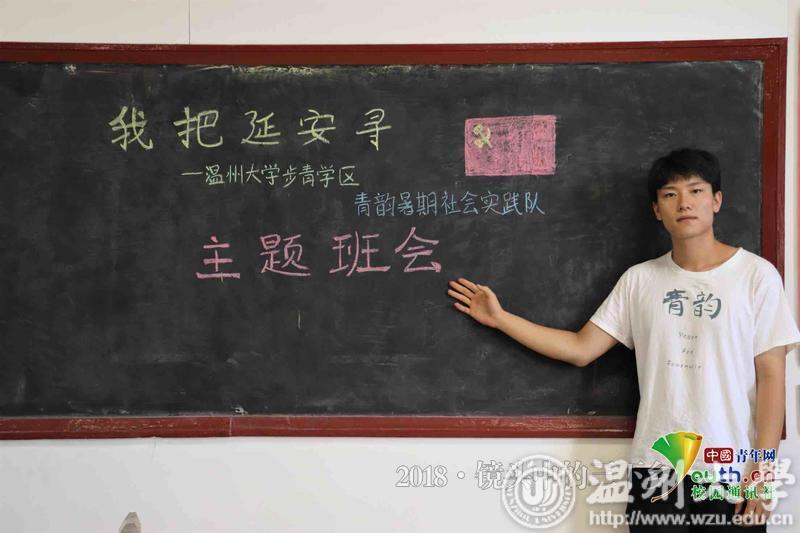 我把延安寻
—温州大学步青学区
青韵暑期社会实践队
主题班会
青韵
2018·镜头中的
中國青年网
outh.cn
校园通讯社
温州大學
http://www.wzu.edu.cn